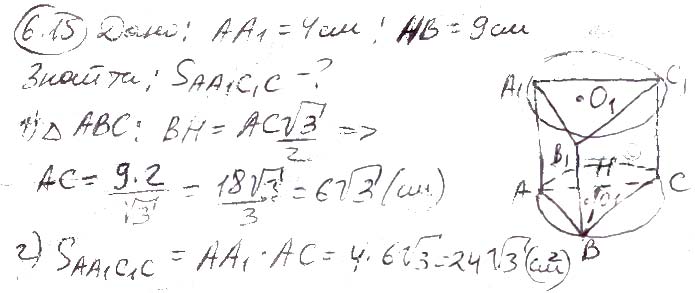 6.15 Дано: AA₁ = 4см; HB = 9см
Знайти: S_AA₁C₁C - ?
1) △ ABC: BH = AC√3/2 =>
AC = 9·2/√3 = 18√3/3 = 6√3 (см)
2) S_AA₁C₁C = AA₁ · AC = 4 · 6√3 = 24√3 (см²)
A₁
C₁
O₁
B₁
H
A
C
B